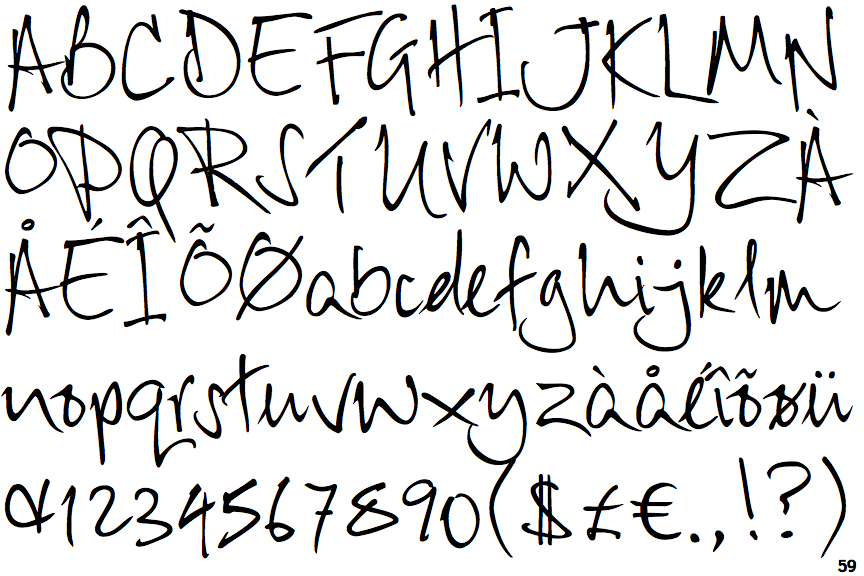 ABCDEFGHIJKLMN
OPQRSTUVWXYZÀ
ÅÉÎÕØabcdefghijklm
nopqrstuvwxyzàåéîõøü
&1234567890($£€.,!?)
59